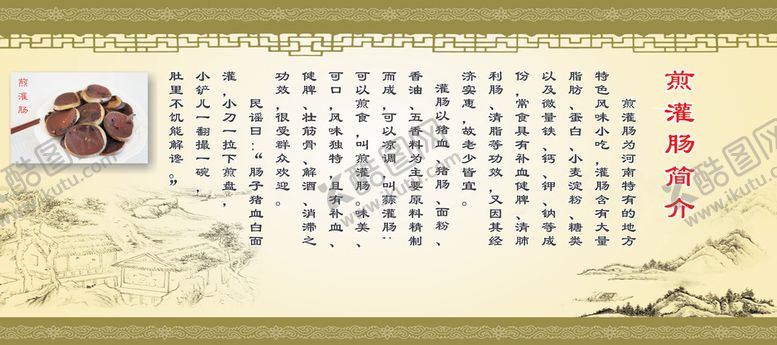 煎灌肠简介
煎灌肠为河南特有的地方
特色风味小吃，灌肠含有大量
脂肪、蛋白、小麦淀粉、糖类
以及微量铁、钙、钾、钠等成
份，常食具有补血健脾、清肺
利肠、清脂等功效，又因其经
济实惠，故老少皆宜。
灌肠以猪血、猪肠、面粉、
香油、五香料为主要原料精制
而成，可以凉调，叫蒜灌肠
可以煎食，叫煎灌肠。味美、
可口，风味独特，且有补血、
健脾、壮筋骨、解酒、消滞之
功效，很受群众欢迎。
民谣曰：“肠子猪血白面
灌，小刀一拉下煎盘，
小铲儿一翻撮一碗，
肚里不饥能解谗。”
煎灌肠
酷图网
www.ikutu.com
酷图网
www.ikutu.com
酷图网
www.ikutu.com